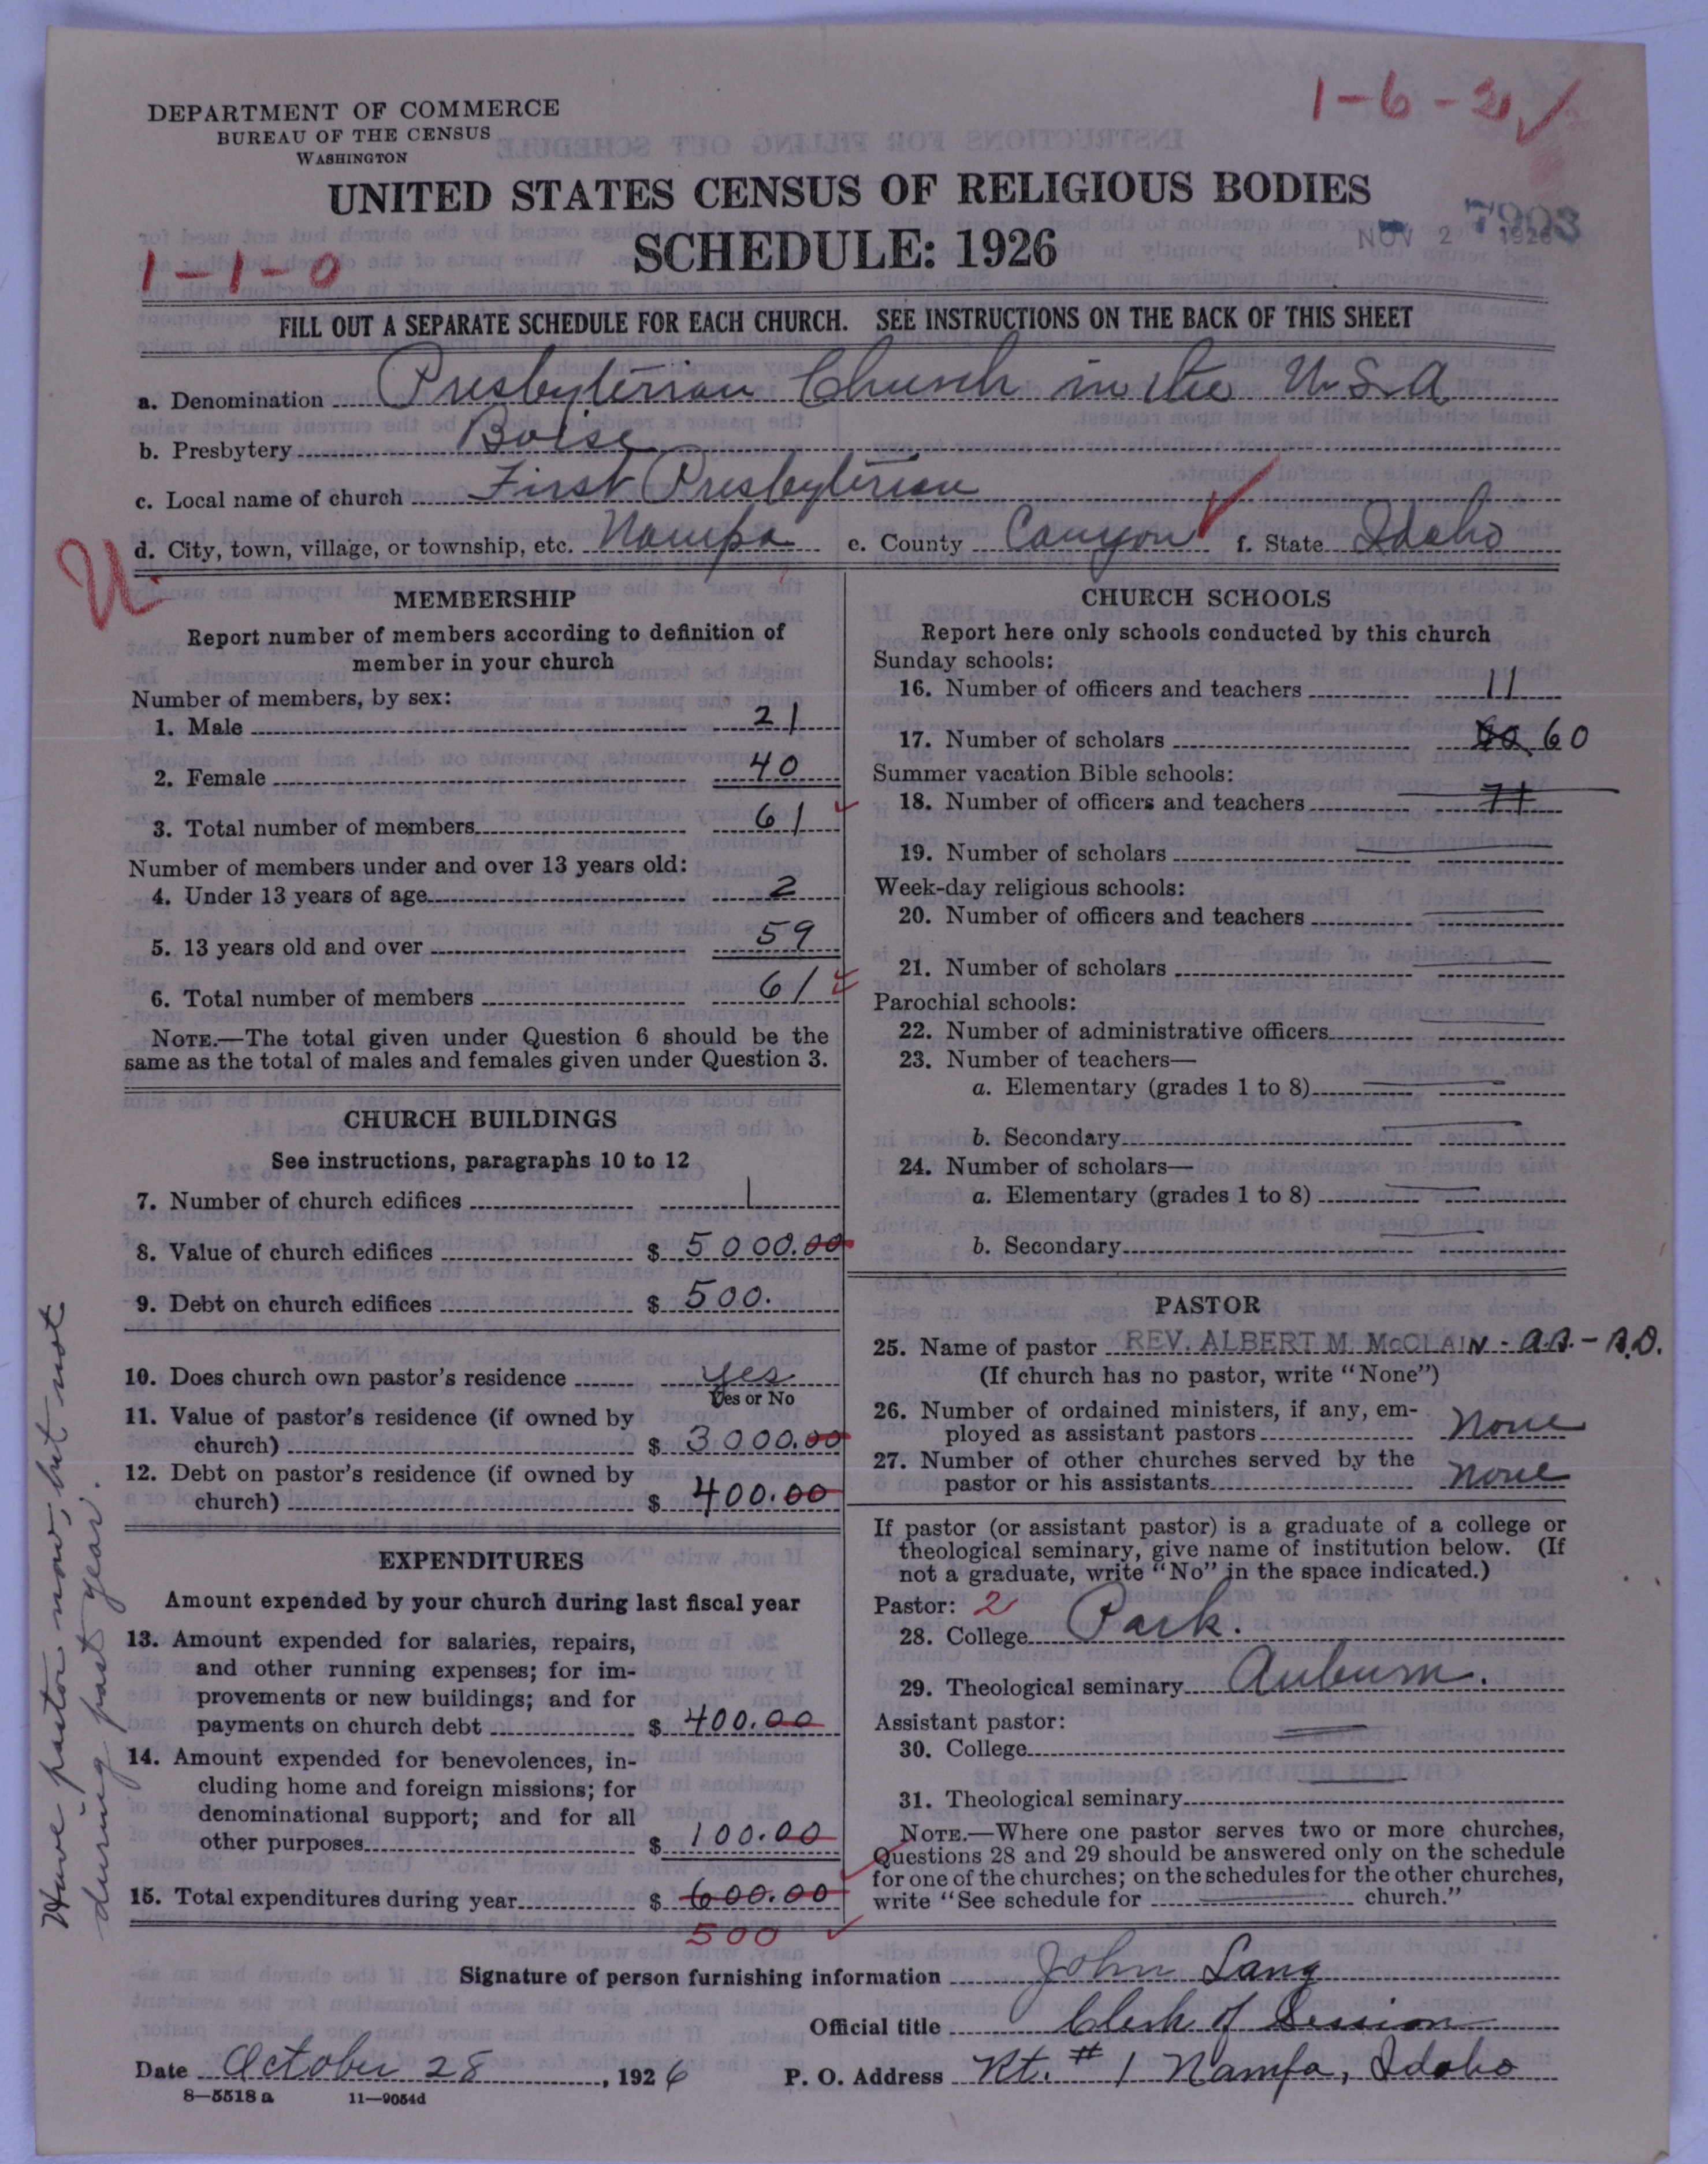 1-6-2 ✓
DEPARTMENT OF COMMERCE
BUREAU OF THE CENSUS
WASHINGTON
UNITED STATES CENSUS OF RELIGIOUS BODIES
SCHEDULE: 1926
NOV 2 1926
7903
1-1-0
FILL OUT A SEPARATE SCHEDULE FOR EACH CHURCH. SEE INSTRUCTIONS ON THE BACK OF THIS SHEET
a. Denomination Presbyterian Church in the U.S.A
b. Presbytery Boise
c. Local name of church First Presbyterian
d. City, town, village, or township, etc. Nampa e. County Canyon f. State Idaho
U.
MEMBERSHIP
Report number of members according to definition of
member in your church
Number of members, by sex:
1. Male 21
2. Female 40
3. Total number of members 61
Number of members under and over 13 years old:
4. Under 13 years of age 2
5. 13 years old and over 59
6. Total number of members 61
NOTE.—The total given under Question 6 should be the
same as the total of males and females given under Question 3.
CHURCH BUILDINGS
See instructions, paragraphs 10 to 12
7. Number of church edifices 1
8. Value of church edifices $ 5000.00
9. Debt on church edifices $ 500.
10. Does church own pastor's residence yes
Yes or No
11. Value of pastor's residence (if owned by
church) $ 3000.00
12. Debt on pastor's residence (if owned by
church) $ 400.00
EXPENDITURES
Amount expended by your church during last fiscal year
13. Amount expended for salaries, repairs,
and other running expenses; for im-
provements or new buildings; and for
payments on church debt $ 400.00
14. Amount expended for benevolences, in-
cluding home and foreign missions; for
denominational support; and for all
other purposes $ 100.00
15. Total expenditures during year $ 600.00
500
Have pastor now, but not
during past year.
CHURCH SCHOOLS
Report here only schools conducted by this church
Sunday schools:
16. Number of officers and teachers 11
17. Number of scholars 60
Summer vacation Bible schools:
18. Number of officers and teachers
19. Number of scholars
Week-day religious schools:
20. Number of officers and teachers
21. Number of scholars
Parochial schools:
22. Number of administrative officers
23. Number of teachers—
a. Elementary (grades 1 to 8)
b. Secondary
24. Number of scholars—
a. Elementary (grades 1 to 8)
b. Secondary
PASTOR
25. Name of pastor REV. ALBERT M. McCLAIN - A.B. - B.D.
(If church has no pastor, write "None")
26. Number of ordained ministers, if any, em-
ployed as assistant pastors None
27. Number of other churches served by the
pastor or his assistants None
If pastor (or assistant pastor) is a graduate of a college or
theological seminary, give name of institution below. (If
not a graduate, write "No" in the space indicated.)
Pastor: 2
28. College Park.
29. Theological seminary Auburn.
Assistant pastor:
30. College
31. Theological seminary
NOTE.—Where one pastor serves two or more churches,
Questions 28 and 29 should be answered only on the schedule
for one of the churches; on the schedules for the other churches,
write "See schedule for church."
Signature of person furnishing information John Lang
Official title Clerk of Session
Date October 28, 1926 P. O. Address Rt. # 1 Nampa, Idaho
8—5518 a 11—9054d